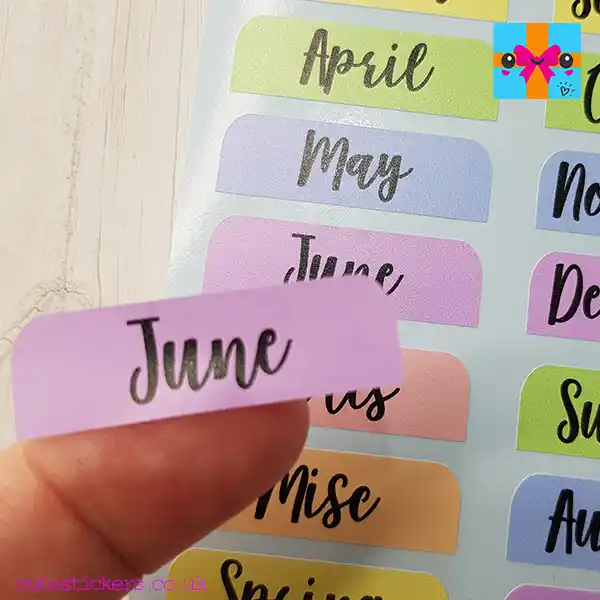 April
May
June
June
Misc
Spring
No
De
Su
Au
cutestickers.co.uk